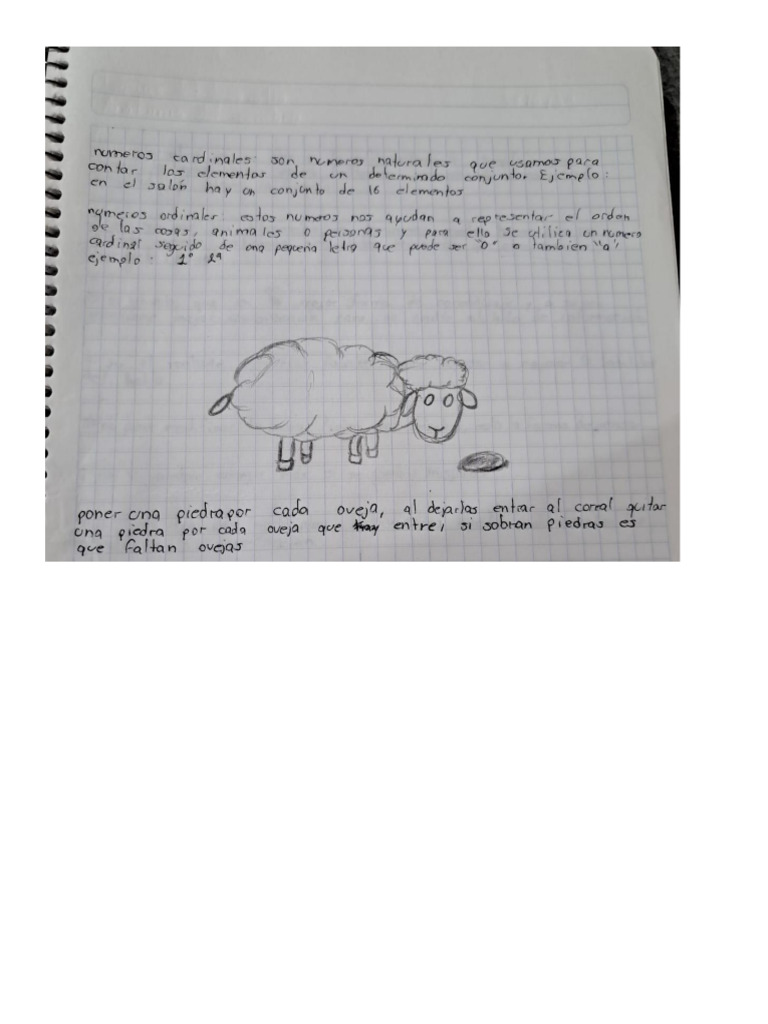 numeros cardinales: son numeros naturales que usamos para
contar los elementos de un determinado conjunto. Ejemplo:
en el salón hay un conjunto de 16 elementos
numeros ordinales: estos numeros nos ayudan a representar el orden
de las cosas, animales o personas y para ello se utilica un numero
cardinal seguido de una pequeña letra que puede ser "o" o tambien "a"
ejemplo: 1º 2ª
poner una piedra por cada oveja, al dejarlas entrar al coreal quitar
una piedra por cada oveja que entre, si sobran piedras es
que faltan ovejas